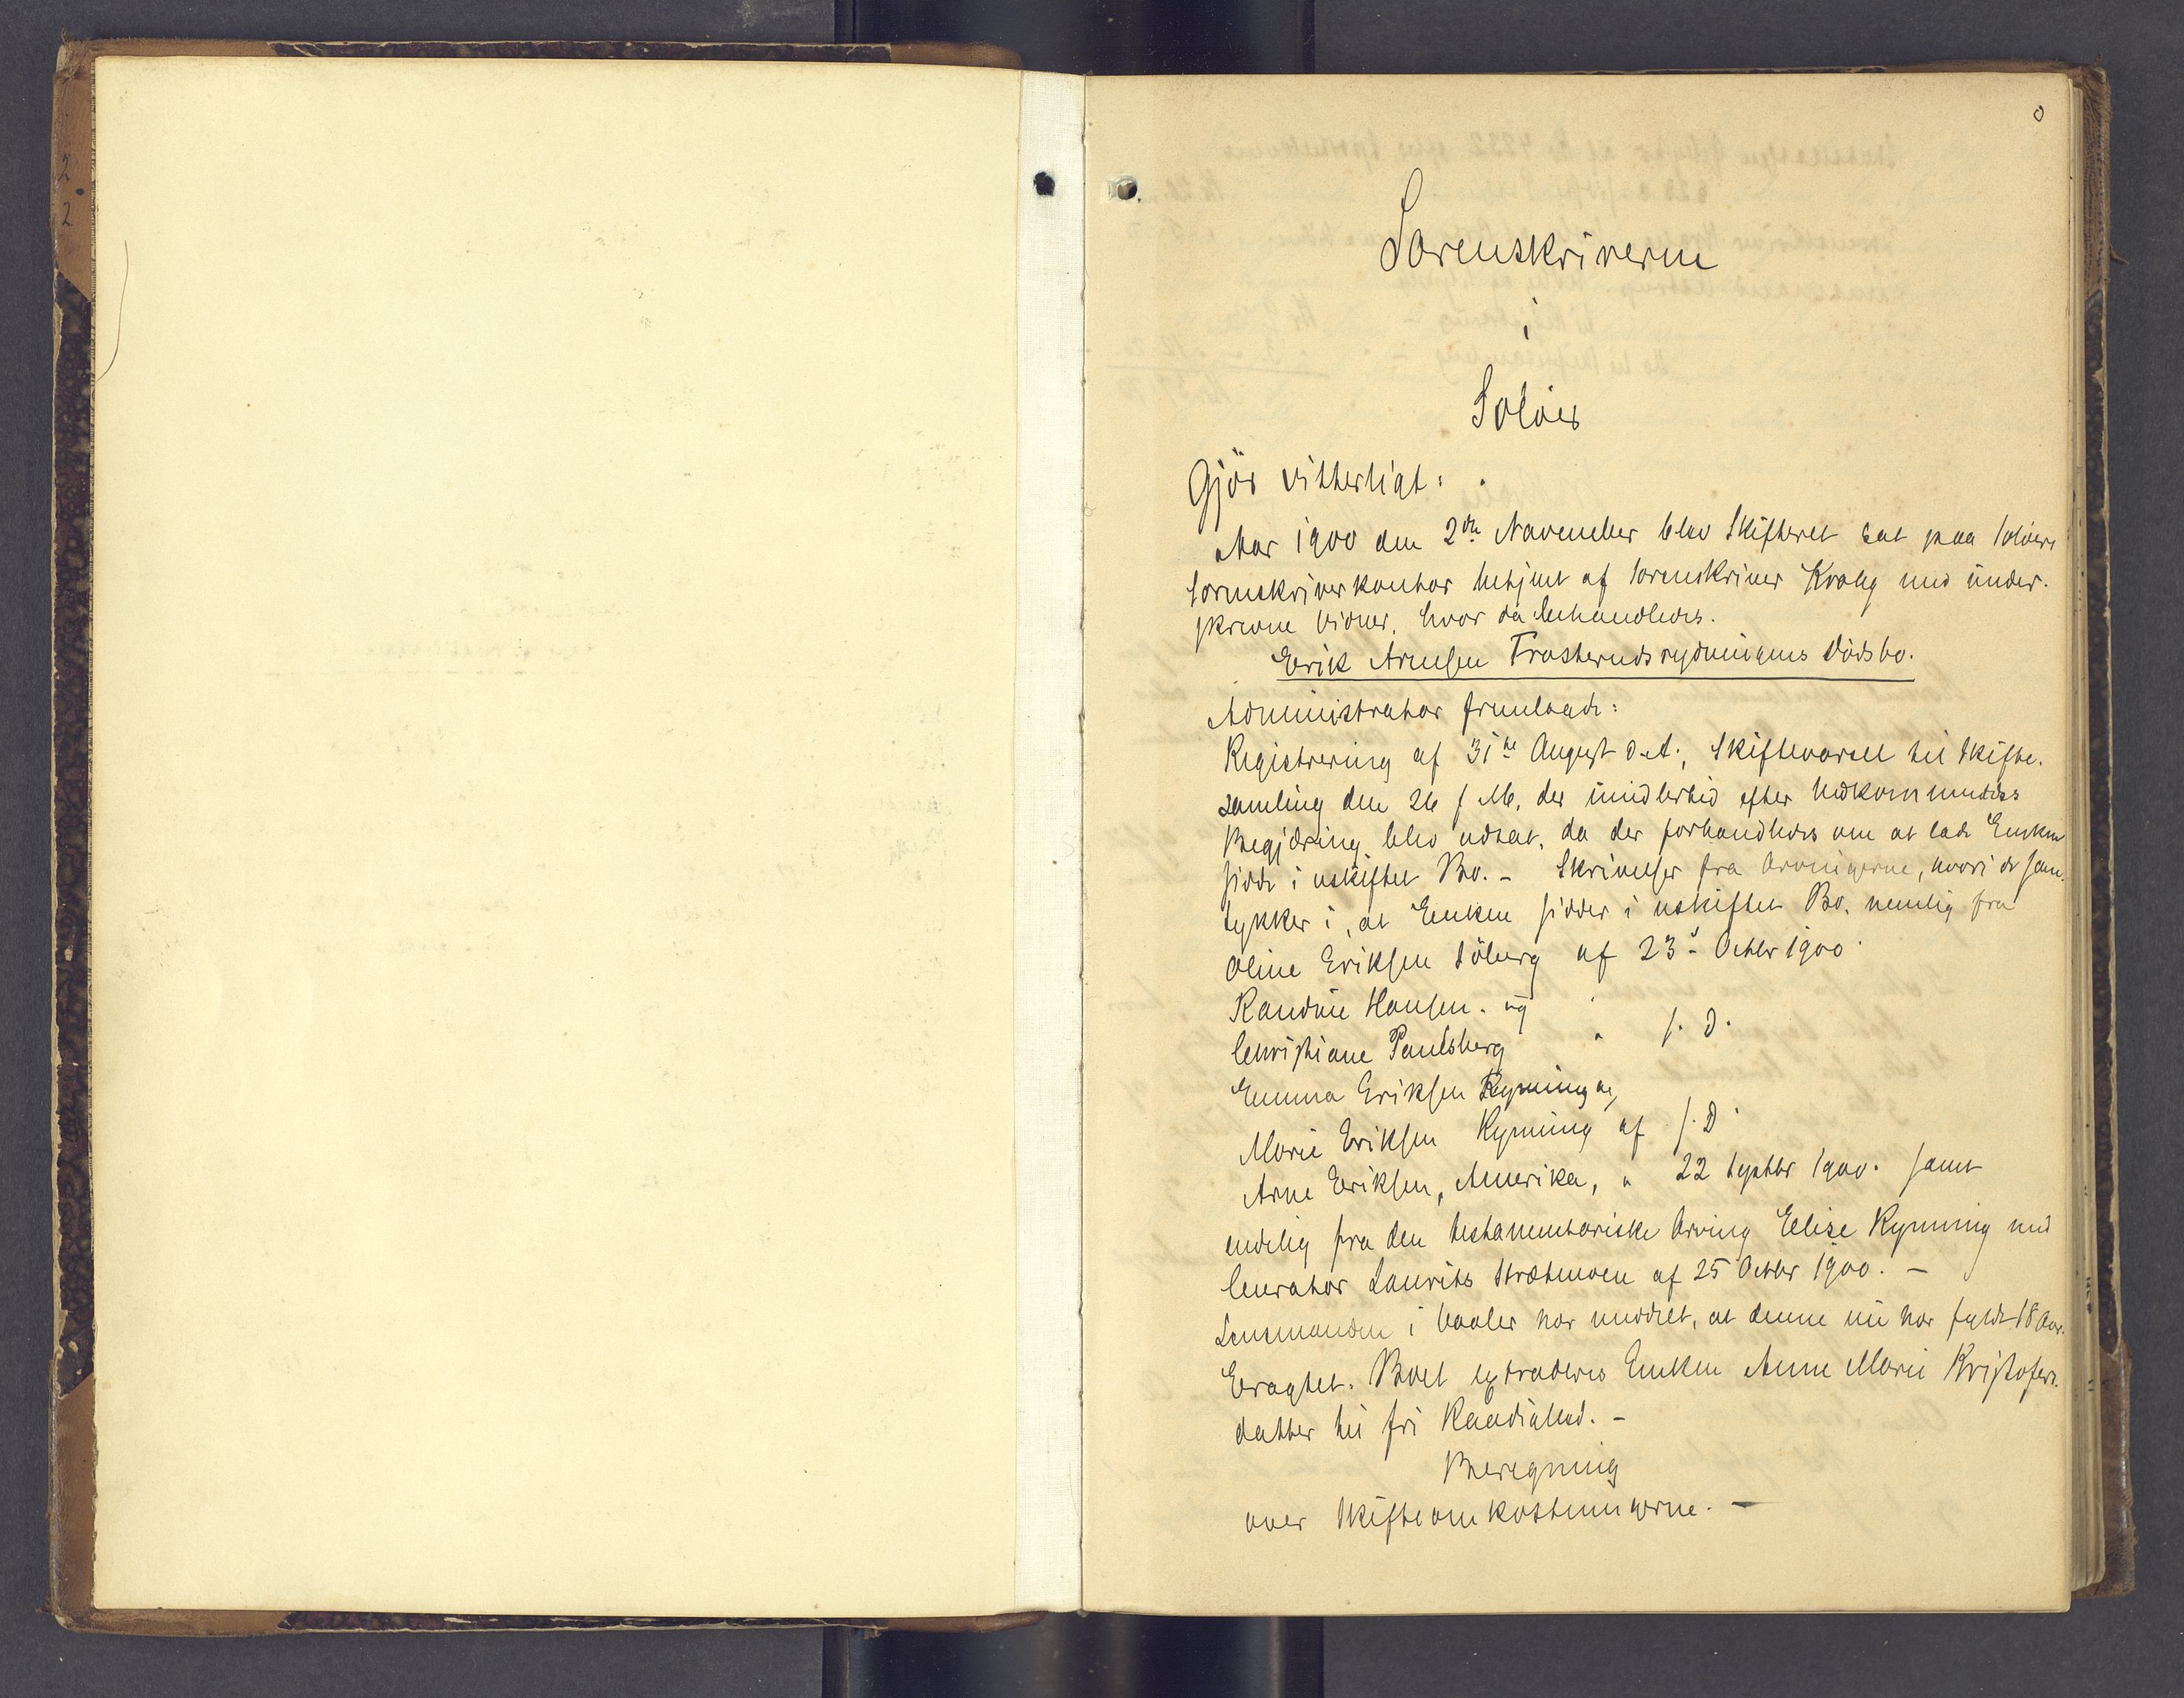 0
Sorenskriveren
i
Solöer
Gjör vitterligt:
Aar 1900 den 2den November blev Skifteret sat paa Solöers
Sorenskriverkontor betjent af Sorenskriver Kraag med under-
skrevne Vidner, hvor da behandledes.
Erik Arnesen Frasterudsrydningens Dödsbo.
Administrator fremlagde:
Registrering af 31te August d. A., Skiftevarsel til Skifte-
samling den 26 f. M. der imidlertid efter Vedkommendes
Begjæring blev udsat, da der forhandledes om at lade Enken
sidde i uskiftet Bo. - Skrivelser fra Arvingerne, hvori de sam-
tykker i, at Enken sidder i uskiftet Bo, nemlig fra
Oline Eriksen Söberg af 23d Octbr 1900.
Randine Hansen. og
Christiane Paulsberg " s. D.
Emma Eriksen Rynning og
Marie Eriksen Rynning af s. D.
Arne Eriksen, Amerika, " 22 Septbr 1900. samt
endelig fra den testamentariske Arving Elise Rynning med
Curator Laurits Strætmoen af 25 Octbr 1900. -
Lensmanden i Vaaler har meddelt, at denne nu har fyldt 18 Aar.
Eragtet. Boet extraderes Enken Anne Marie Kristofers-
datter til fri Raadighed. -
Beregning
over Skifteomkostningerne. -